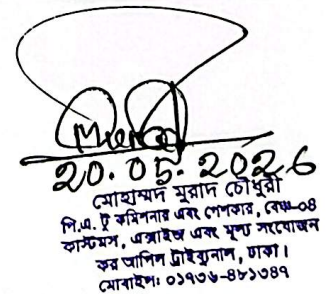 20.05.2026
মোহাম্মদ মুরাদ চৌধুরী
পি.এ. টু কমিশনার এবং পেশকার, বেঞ্চ-০৪
কাস্টমস, এক্সাইজ এবং মূল্য সংযোজন
কর আপিল ট্রাইব্যুনাল, ঢাকা।
মোবাইলঃ ০১৭৩৬-৪৮১৩৪৭